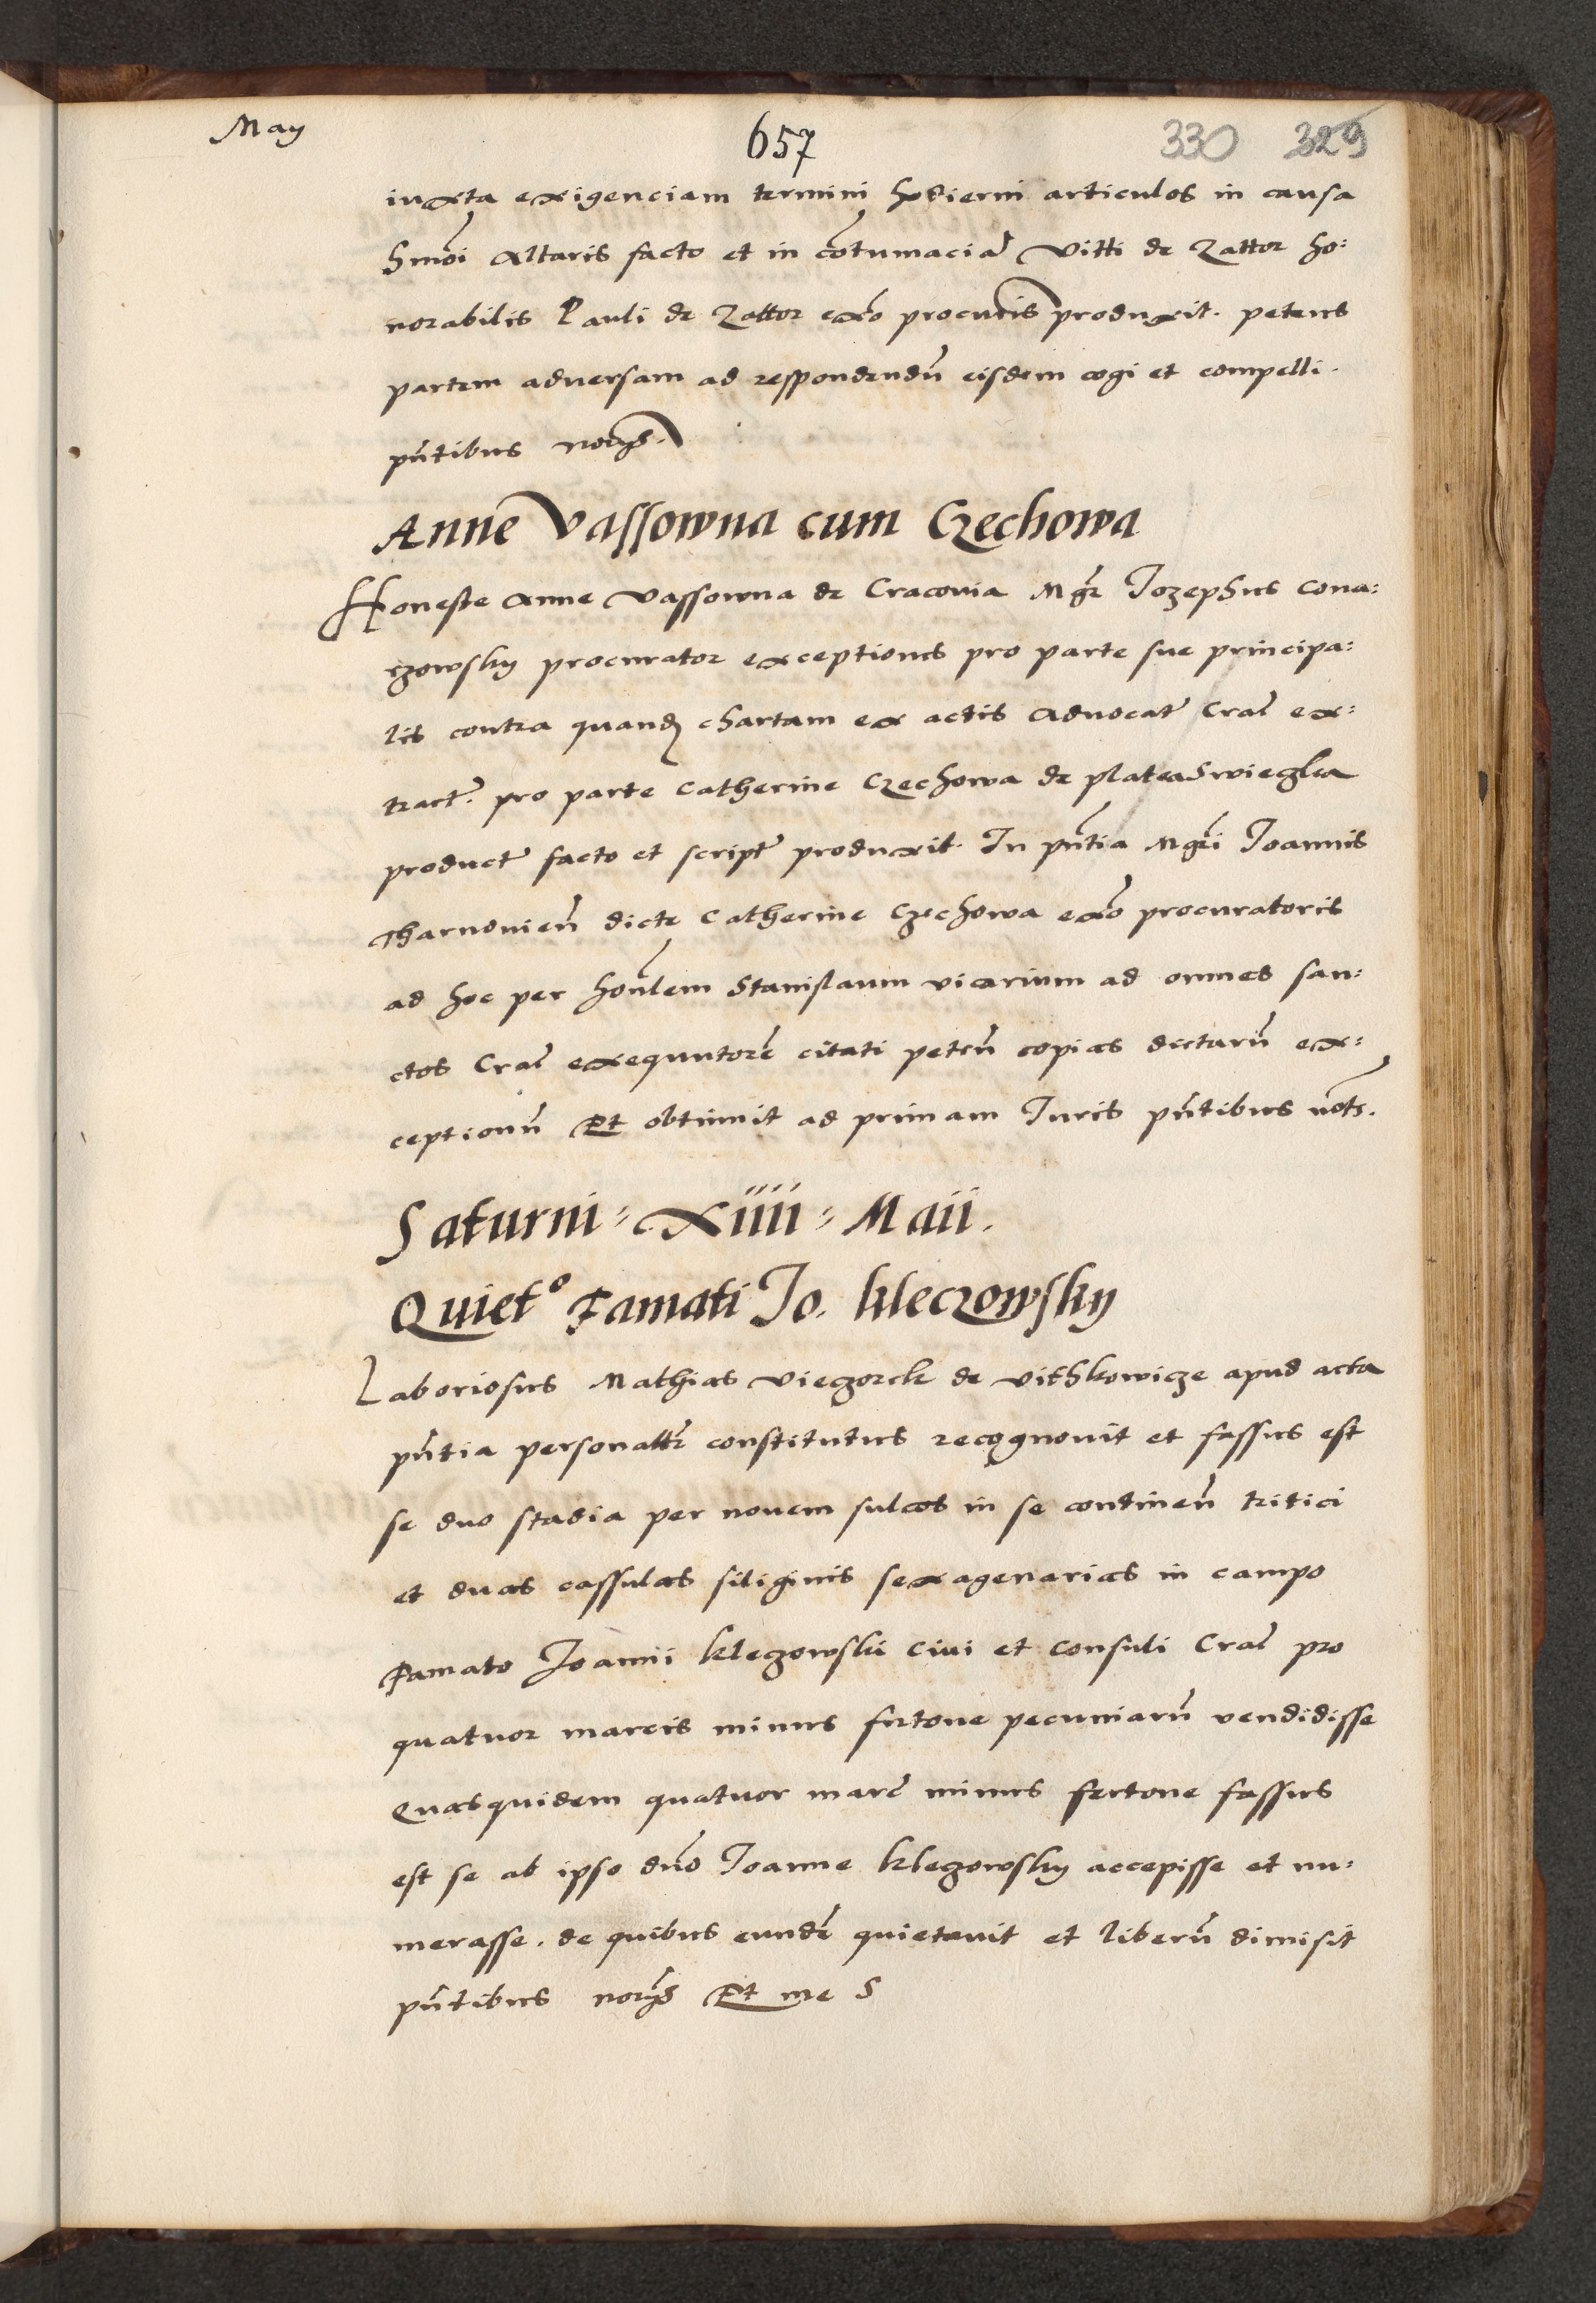 May 657 330 329
iuxta exigenciam termini hodierni articulos in causa
hmōi Altaris facto et in cōtumaciā Vitti de Zattor ho:
norabilis Pauli de Zattor ex̄o procuris produxit. petens
partem adversam ad respondendū eisdem cogi et compelli.
pn̄tibus norijs.
Anne Vassowna cum Czechowa
Honeste Anne Vassowna de Cracovia Mgr̄ Jozephus Cona:
rzowsky procurator exceptiones pro parte sue principa:
lis contra quandā chartam ex actis Advocat̄ Crac̄ ex:
tract̄. pro parte Catherine Czechowa de platea Swieglea
product̄ facto et script̄ produxit. In pn̄tia Mgr̄i Joannis
Tharnovien̄ dicte Catherine Czechowa ex̄o procuratoris
ad hoc per hon̄lem Stanislaum vicarium ad omnes san:
ctos Crac̄ exequutorē citati peten̄ copias dictarū ex:
ceptionū Et obtinuit ad primam Juris pn̄tibus not̄s.
Saturni = Xiiii = Maii.
Quiet° Famati Jo. kleczowsky
Laboriosus Mathias Viegorek de Vithkowicze apud acta
pn̄tia personalt̄r constitutus recognovit et fassus est
se duo stadia per novem sulcos in se continen̄ tritici
et duas cassulas siliginis sexagenarias in campo
Famato Joanni klegowski Civi et Consuli Crac̄ pro
quatuor marcis minus fertone pecuniarū vendidisse
Quasquidem quatuor marc̄ minus fertone fassus
est se ab ipso dn̄o Joanne klegowsky accepisse et nu:
merasse. de quibus eundē quietavit et liberū dimisit
pn̄tibus norijs Et me S